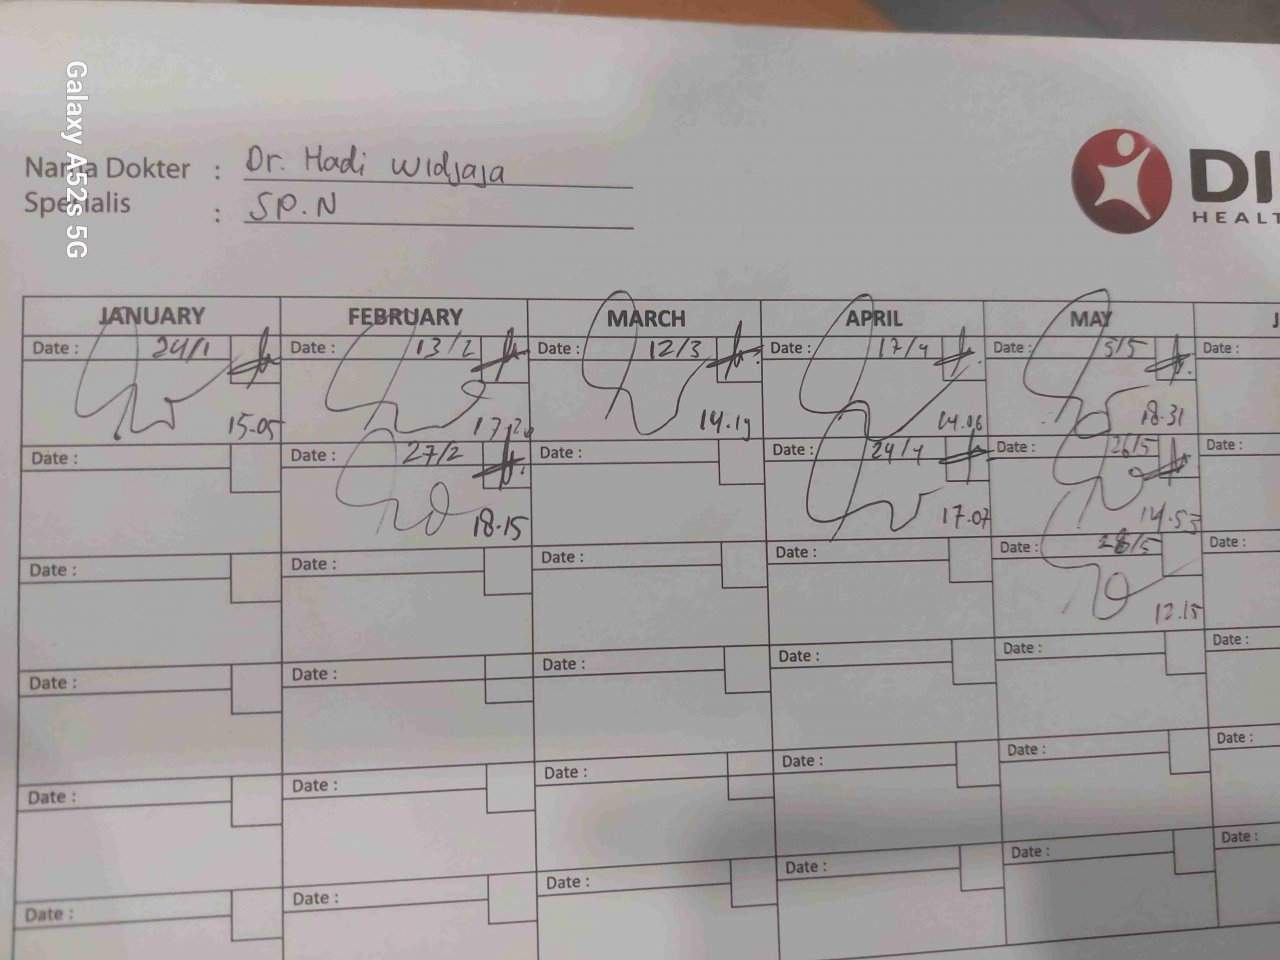 Galaxy A52s 5G
Nama Dokter : Dr. Hadi Widjaja
Spesialis : SP.N
DI
HEALT
JANUARY FEBRUARY MARCH APRIL MAY J
Date : 24/1 Date : 13/2 Date : 12/3 Date : 17/4 Date : 5/5 Date :
15.05 14.19 14.06 18.31
Date : Date : 27/2 Date : Date : 24/4 Date : 26/5 Date :
18.15 17.07 14.53
Date : Date : Date : Date : Date : 28/5 Date :
12.15
Date : Date : Date : Date : Date : Date :
Date : Date : Date : Date : Date : Date :
Date : Date : Date : Date : Date : Date :